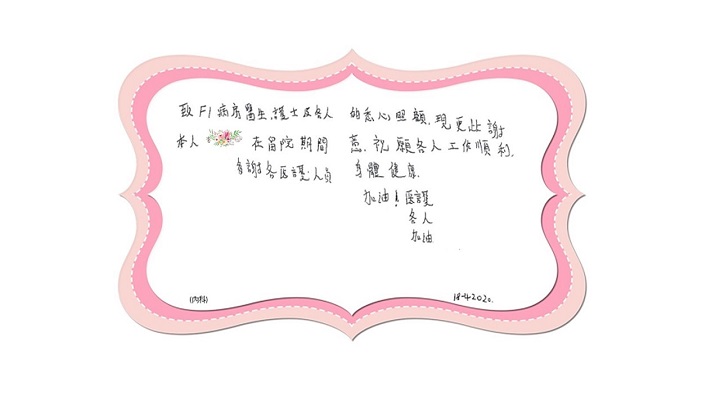 致F1病房醫生、護士及各人
本人 在留院期間
有謝各医護人員
的悉心照顧，現更此謝
意，祝願各人工作順利，
身體健康
加油！医護
各人
加油
(內科)
18-4-2020.